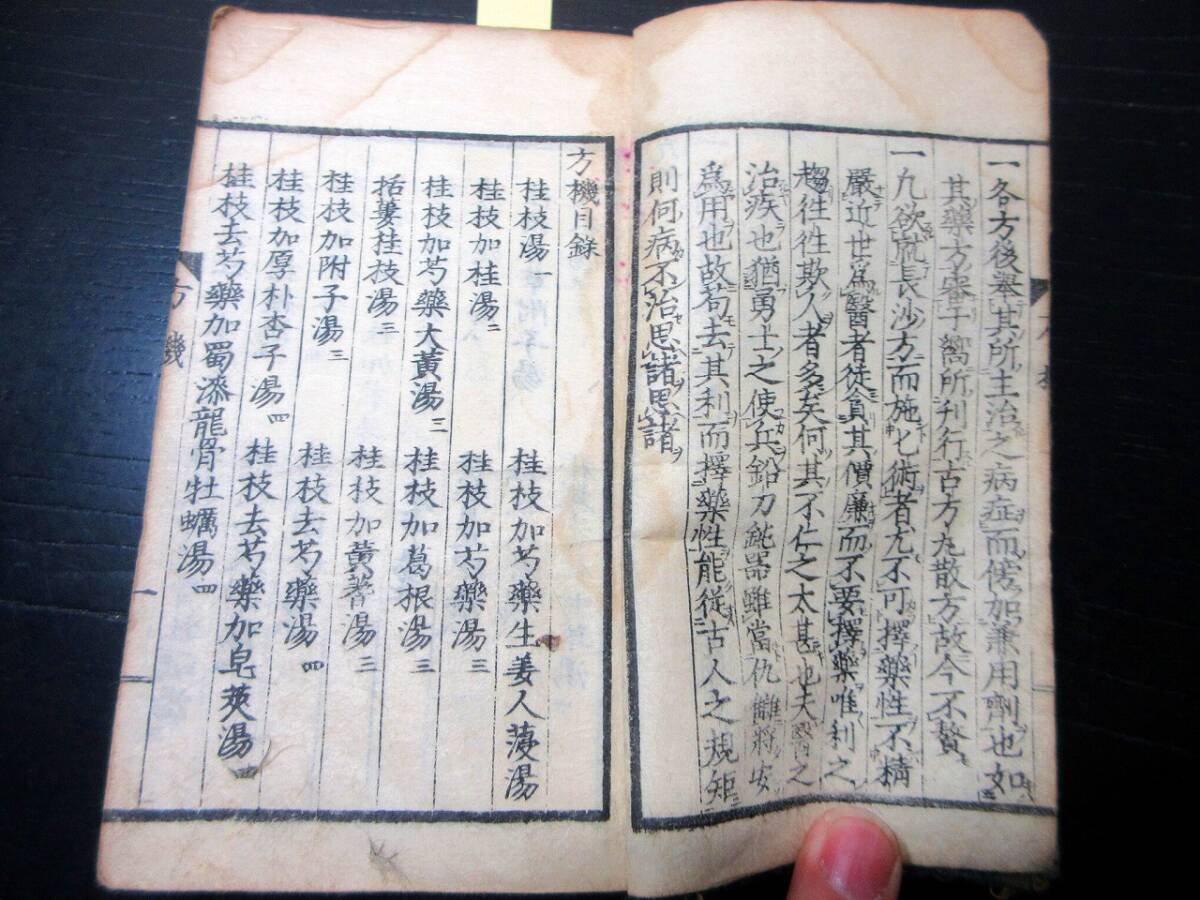 一各方後舉其所主治之病症而傍加兼用劑也如
其藥方審于嚮所刊行古方丸散方故今不贅
一凡欲就長沙方而施匕術者尤不可擇藥性不精
嚴近世爲醫者徒貪其價廉而不要擇藥唯利之
趨往往欺人者多矣何其不仁之太甚也夫醫之
治疾也猶勇士之使兵鉛刀鈍器雖當仇讎將安
爲用也故苟去其利而擇藥性能從古人之規矩
則何病不治思諸思諸
方機目錄
桂枝湯一 桂枝加芍藥生姜人蓡湯
桂枝加桂湯二 桂枝加芍藥湯三
桂枝加芍藥大黃湯三 桂枝加葛根湯三
括蔞桂枝湯三 桂枝加黃蓍湯三
桂枝加附子湯三 桂枝去芍藥湯四
桂枝加厚朴杏子湯四 桂枝去芍藥加皂莢湯四
桂枝去芍藥加蜀漆龍骨牡蠣湯四
方機
一